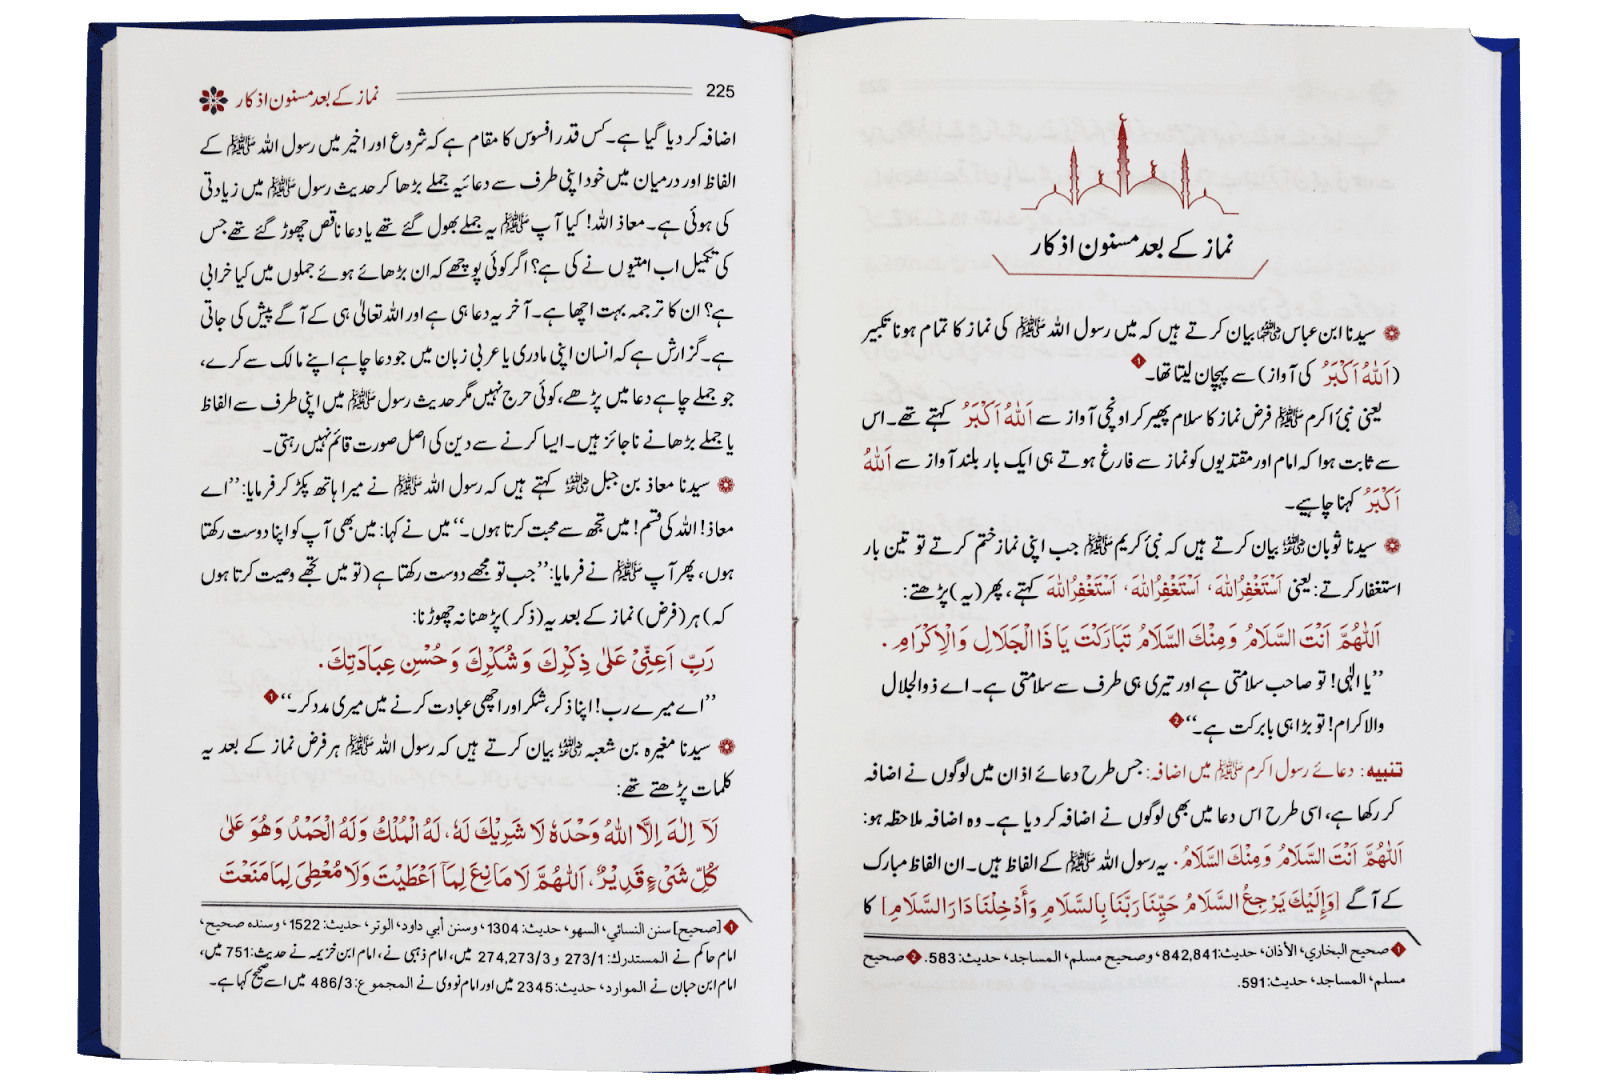 نماز کے بعد مسنون اذکار
سیدنا ابن عباس رضی اللہ عنہما بیان کرتے ہیں کہ میں رسول اللہ ﷺ کی نماز کا تمام ہونا تکبیر
(اَللّٰهُ اَكْبَرُ کی آواز) سے پہچان لیتا تھا۔ 1
یعنی نبیٔ اکرم ﷺ فرض نماز کا سلام پھیر کر اونچی آواز سے اَللّٰهُ اَكْبَرُ کہتے تھے۔ اس
سے ثابت ہوا کہ امام اور مقتدیوں کو نماز سے فارغ ہوتے ہی ایک بار بلند آواز سے اَللّٰهُ
اَكْبَرُ کہنا چاہیے۔
سیدنا ثوبان رضی اللہ عنہ بیان کرتے ہیں کہ نبیٔ کریم ﷺ جب اپنی نماز ختم کرتے تو تین بار
استغفار کرتے: یعنی اَسْتَغْفِرُاللّٰهَ، اَسْتَغْفِرُاللّٰهَ، اَسْتَغْفِرُاللّٰهَ کہتے، پھر (یہ) پڑھتے:
اَللّٰهُمَّ اَنْتَ السَّلَامُ وَمِنْكَ السَّلَامُ تَبَارَكْتَ يَا ذَا الْجَلَالِ وَالْاِكْرَامِ.
”یا الٰہی! تو صاحب سلامتی ہے اور تیری ہی طرف سے سلامتی ہے۔ اے ذوالجلال
والاکرام! تو بڑا ہی بابرکت ہے۔“ 2
تنبیہ: دعائے رسول اکرم ﷺ میں اضافہ: جس طرح دعائے اذان میں لوگوں نے اضافہ
کر رکھا ہے، اسی طرح اس دعا میں بھی لوگوں نے اضافہ کر دیا ہے۔ وہ اضافہ ملاحظہ ہو:
اَللّٰهُمَّ اَنْتَ السَّلَامُ وَمِنْكَ السَّلَامُ. یہ رسول اللہ ﷺ کے الفاظ ہیں۔ ان الفاظ مبارک
کے آگے [وَإِلَيْكَ يَرْجِعُ السَّلَامُ حَيِّنَا رَبَّنَا بِالسَّلَامِ وَأَدْخِلْنَا دَارَ السَّلَامِ] کا
1 صحیح البخاري، الأذان، حدیث: 842,841، وصحیح مسلم، المساجد، حدیث: 583. 2 صحیح
مسلم، المساجد، حدیث: 591.
نماز کے بعد مسنون اذکار 225
اضافہ کر دیا گیا ہے۔ کس قدر افسوس کا مقام ہے کہ شروع اور اخیر میں رسول اللہ ﷺ کے
الفاظ اور درمیان میں خود اپنی طرف سے دعائیہ جملے بڑھا کر حدیث رسول ﷺ میں زیادتی
کی ہوئی ہے۔ معاذ اللہ! کیا آپ ﷺ یہ جملے بھول گئے تھے یا دعا ناقص چھوڑ گئے تھے جس
کی تکمیل اب امتیوں نے کی ہے؟ اگر کوئی پوچھے کہ ان بڑھائے ہوئے جملوں میں کیا خرابی
ہے؟ ان کا ترجمہ بہت اچھا ہے۔ آخر یہ دعا ہی ہے اور اللہ تعالیٰ ہی کے آگے پیش کی جاتی
ہے۔ گزارش ہے کہ انسان اپنی مادری یا عربی زبان میں جو دعا چاہے اپنے مالک سے کرے،
جو جملے چاہے دعا میں پڑھے، کوئی حرج نہیں مگر حدیث رسول ﷺ میں اپنی طرف سے الفاظ
یا جملے بڑھانے ناجائز ہیں۔ ایسا کرنے سے دین کی اصل صورت قائم نہیں رہتی۔
سیدنا معاذ بن جبل رضی اللہ عنہ کہتے ہیں کہ رسول اللہ ﷺ نے میرا ہاتھ پکڑ کر فرمایا: ”اے
معاذ! اللہ کی قسم! میں تجھ سے محبت کرتا ہوں۔“ میں نے کہا: میں بھی آپ کو اپنا دوست رکھتا
ہوں، پھر آپ ﷺ نے فرمایا: ”جب تو مجھے دوست رکھتا ہے (تو میں تجھے وصیت کرتا ہوں
کہ) ہر (فرض) نماز کے بعد یہ (ذکر) پڑھنا نہ چھوڑنا:
رَبِّ اَعِنِّىْ عَلٰى ذِكْرِكَ وَشُكْرِكَ وَحُسْنِ عِبَادَتِكَ.
”اے میرے رب! اپنا ذکر، شکر اور اچھی عبادت کرنے میں میری مدد کر۔“ 1
سیدنا مغیرہ بن شعبہ رضی اللہ عنہ بیان کرتے ہیں کہ رسول اللہ ﷺ ہر فرض نماز کے بعد یہ
کلمات پڑھتے تھے:
لَآ اِلٰهَ اِلَّا اللّٰهُ وَحْدَهٗ لَا شَرِيْكَ لَهٗ، لَهُ الْمُلْكُ وَلَهُ الْحَمْدُ وَهُوَ عَلٰى
كُلِّ شَىْءٍ قَدِيْرٌ، اَللّٰهُمَّ لَا مَانِعَ لِمَآ اَعْطَيْتَ وَلَا مُعْطِىَ لِمَا مَنَعْتَ
1 [صحیح] سنن النسائي، السهو، حدیث: 1304، وسنن أبي داود، الوتر، حدیث: 1522، وسنده صحیح،
امام حاکم نے المستدرك: 273/1 و 274,273/3 میں، امام ذہبی نے، امام ابن خزیمہ نے حدیث: 751 میں،
امام ابن حبان نے الموارد، حدیث: 2345 میں اور امام نووی نے المجموع: 486/3 میں اسے صحیح کہا ہے۔